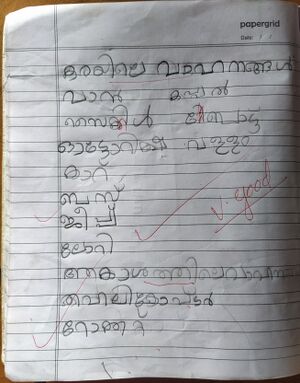 papergrid
Date: / /
കരയിലെ വാഹനങ്ങൾ
വാൻ കപ്പൽ
സൈക്കിൾ ബോട്ട്
ഓട്ടോറിക്ഷ വള്ളം
കാറ്
ബസ്സ്
ജീപ്പ്
ലോറി
v. good
ആകാശത്തിലെ വാഹന
റോക്കറ്റ്